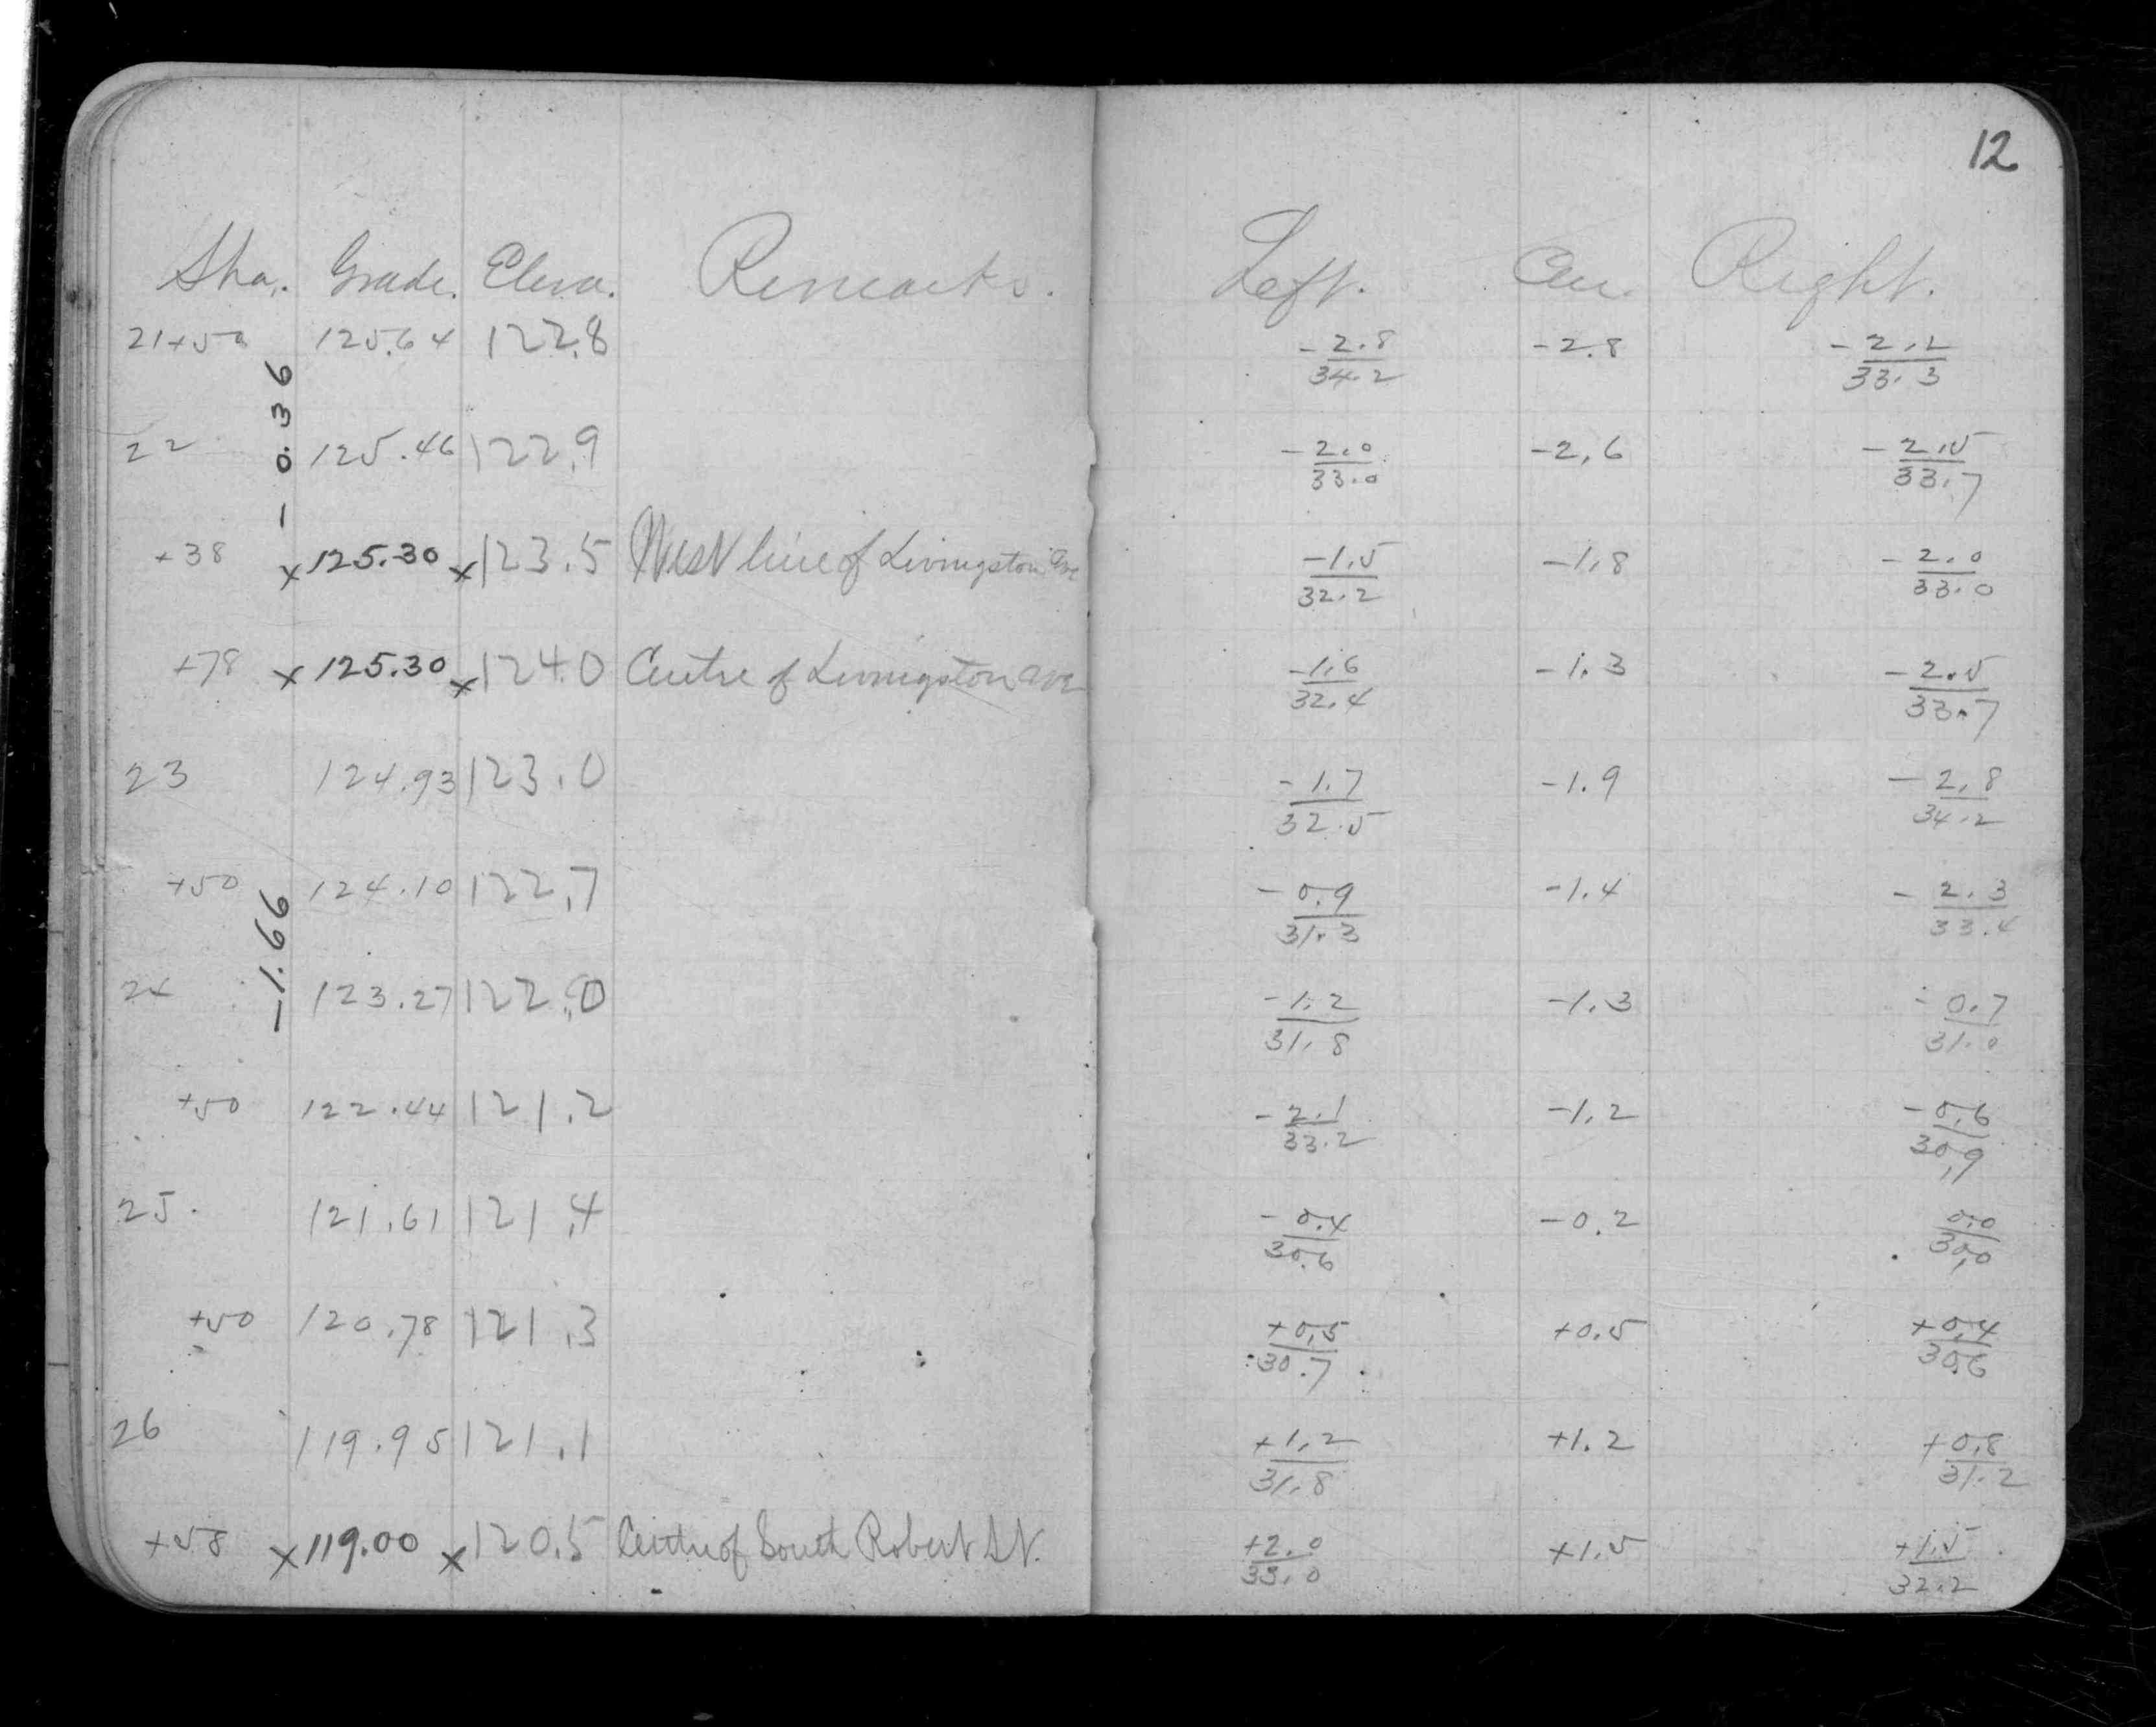 12
Sta. Grade. Eleva. Remarks. Left. Cen. Right.
21+50 125.64 122.8 -2.8/34.2 -2.8 -2.2/33.3
-0.36
22 125.46 122.9 -2.0/33.0 -2.6 -2.5/33.7
+38 x 125.30 x 123.5 West line of Livingston Ave -1.5/32.2 -1.8 -2.0/33.0
+78 x 125.30 x 124.0 Centre of Livingston Ave -1.6/32.4 -1.3 -2.5/33.7
23 124.93 123.0 -1.7/32.5 -1.9 -2.8/34.2
+50 124.10 122.7 -0.9/31.3 -1.4 -2.3/33.4
-1.66
24 123.27 122.0 -1.2/31.8 -1.3 -0.7/31.0
+50 122.44 121.2 -2.1/33.2 -1.2 -0.6/30.9
25. 121.61 121.4 -0.4/30.6 -0.2 0.0/30.0
+50 120.78 121.3 +0.5/30.7 +0.5 +0.4/30.6
26 119.95 121.1 +1.2/31.8 +1.2 +0.8/31.2
+58 x 119.00 x 120.5 Centre of South Robert St. +2.0/33.0 +1.5 +1.5/32.2